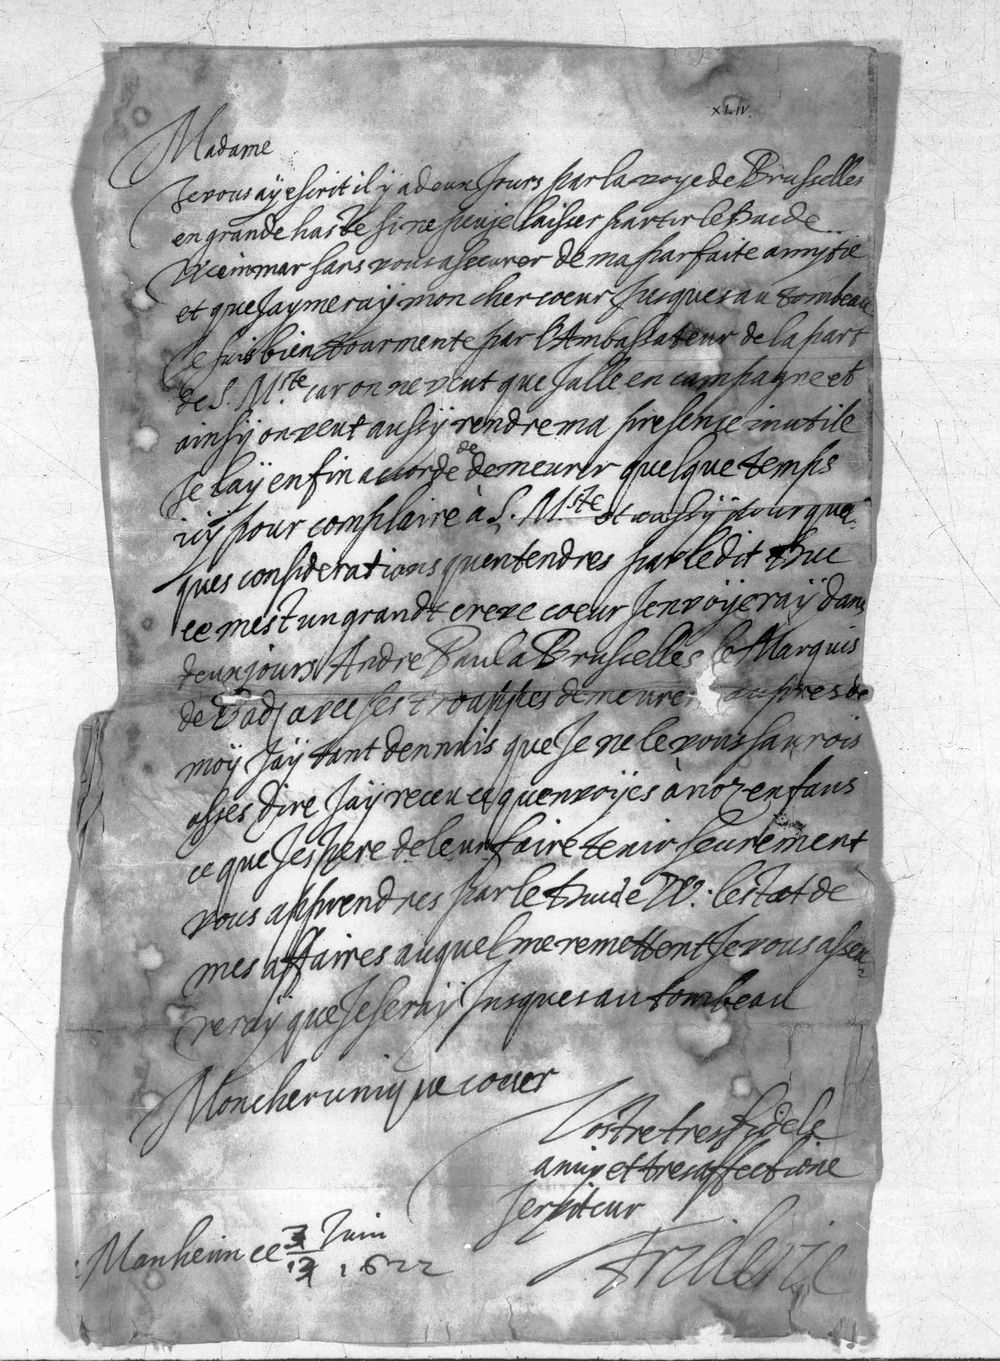 XLIV.
Madame
Je vous aÿ escrit il y a deux Jours par la voye de Brusselles
en grande haste si ne peuje laisser partir le Duc de
Weinmar sans vous asseurer de ma parfaite amytie
et que Jaymeraÿ mon cher coeur Jusques au tombeau
Je suis bien tourmente par l'Ambassateur de la part
de S. M.ste car on ne veut que Jalle en campagne et
ainsÿ on veut aussÿ rendre ma presence inutile
Je laÿ enfin accorde de demeurer quelque temps
icÿ pour complaire à S. M.ste et aussÿ pour quel
ques considerations quentendres par ledit Duc
ce mest un grandt creve coeur Jenvoÿeraÿ dans
deux jours Andre Paul a Brusselles le Marquis
de Bad avec ses trouppes demeure aupres de
moÿ Jaÿ tant dennuis que Je ne le vous saurois
asses dire Jaÿ receu ce quenvoÿes à noz enfans
ce que Jespere de leur faire tenir seurement
vous apprendres par le Duc de W: lestat de
mes affaires auquel me remettent Je vous asseu
reraÿ que Je seraÿ Jusques au tombeau
Mon cher unique coeur
Vostre tres fidele
amy et tres affectione
serviteur
Manheim ce 3/13 Juin 1622
Frideric